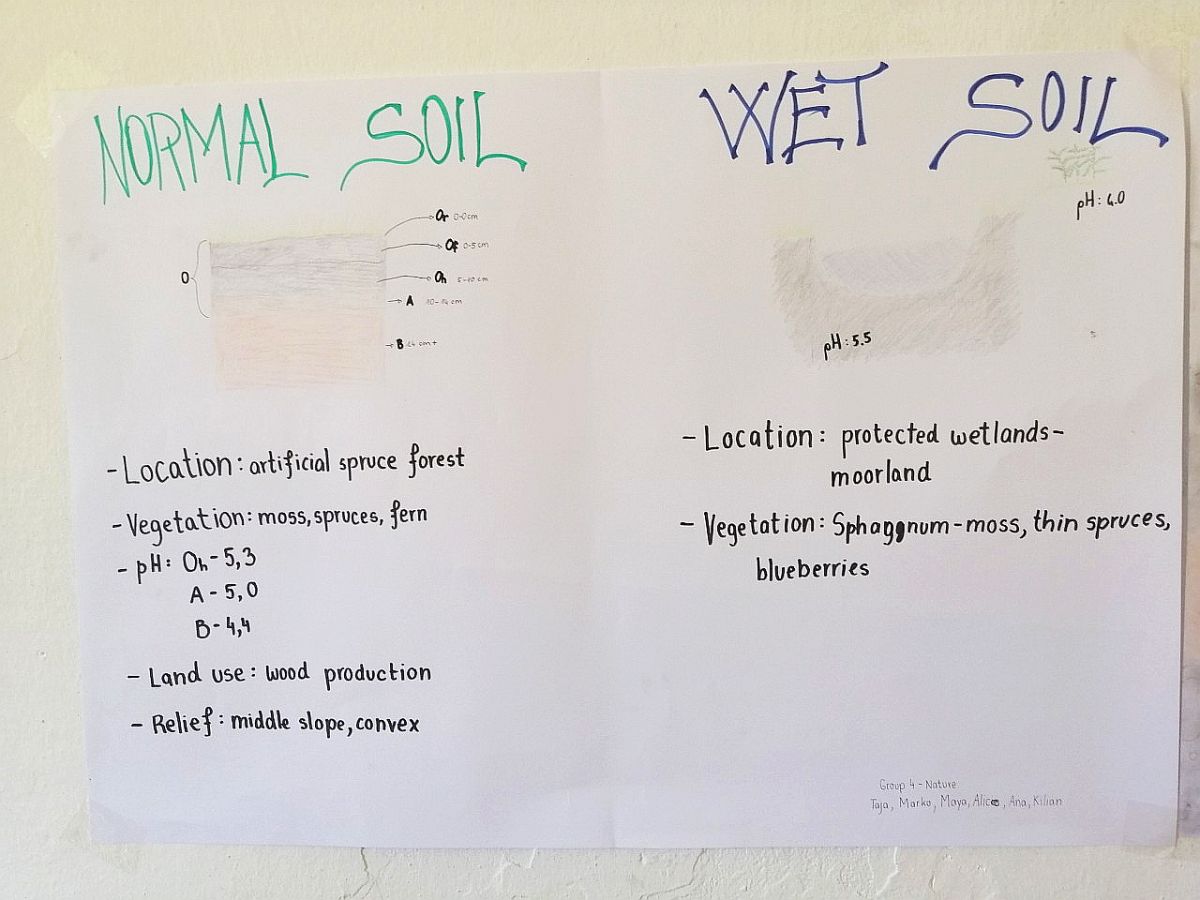 NORMAL SOIL
O
Or 0-0cm
Of 0-5cm
Oh 5-10 cm
A 10-14 cm
B 14 cm+
- Location: artificial spruce forest
- Vegetation: moss, spruces, fern
- pH: Oh - 5,3
A - 5,0
B - 4,4
- Land use: wood production
- Relief: middle slope, convex
WET SOIL
pH: 5.5
- Location: protected wetlands-
moorland
- Vegetation: Sphaggnum-moss, thin spruces,
blueberries
Group 4 - Nature
Taja, Marko, Maya, Alice, Ana, Kilian